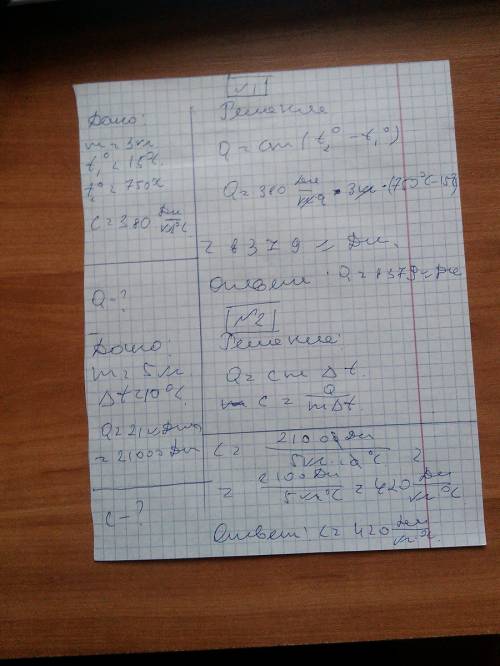 №1
Дано:
m = 3кг
t₁° = 15°C
t₂° = 750°C
c = 380 Дж/кг°C
Q - ?
Решение
Q = cm (t₂° - t₁°)
Q = 380 Дж/кг°C · 3кг · (750°C - 15°C)
Дж.
Ответ: Q =
№2
Дано:
m = 5 кг
Δt = 10°C.
Q = 21кДж
= 21000 Дж
c - ?
Решение:
Q = cm Δt.
c = Q/mΔt.
c = 21000 Дж/5кг · °C =
= 2100 Дж/5кг°C = 420 Дж/кг°C
Ответ: c = 420 Дж/кг°C.